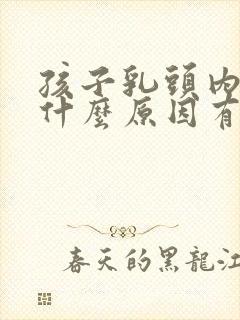 孩子乳頭內
什麼原因有
春天的黑龍江